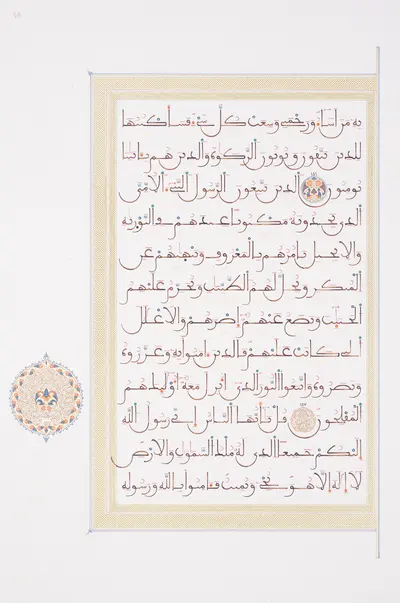 به من اشاء ورحمتى وسعت كل شىء فساكتبها
للذين يتقون ويوتون الزكوة والذين هم بايتنا
يومنون الذين يتبعون الرسول النبى الامى
الذى يجدونه مكتوبا عندهم فى التورية
والانجيل يامرهم بالمعروف وينهيهم عن
المنكر ويحل لهم الطيبت ويحرم عليهم
الخبيث ويضع عنهم اصرهم والاغلل
التى كانت عليهم فالذين امنوا به وعزروه
ونصروه واتبعوا النور الذى انزل معه اوليك هم
المفلحون قل يايها الناس انى رسول الله
اليكم جميعا الذى له ملك السموت والارض
لا اله الا هو يحى ويميت فامنوا بالله ورسوله